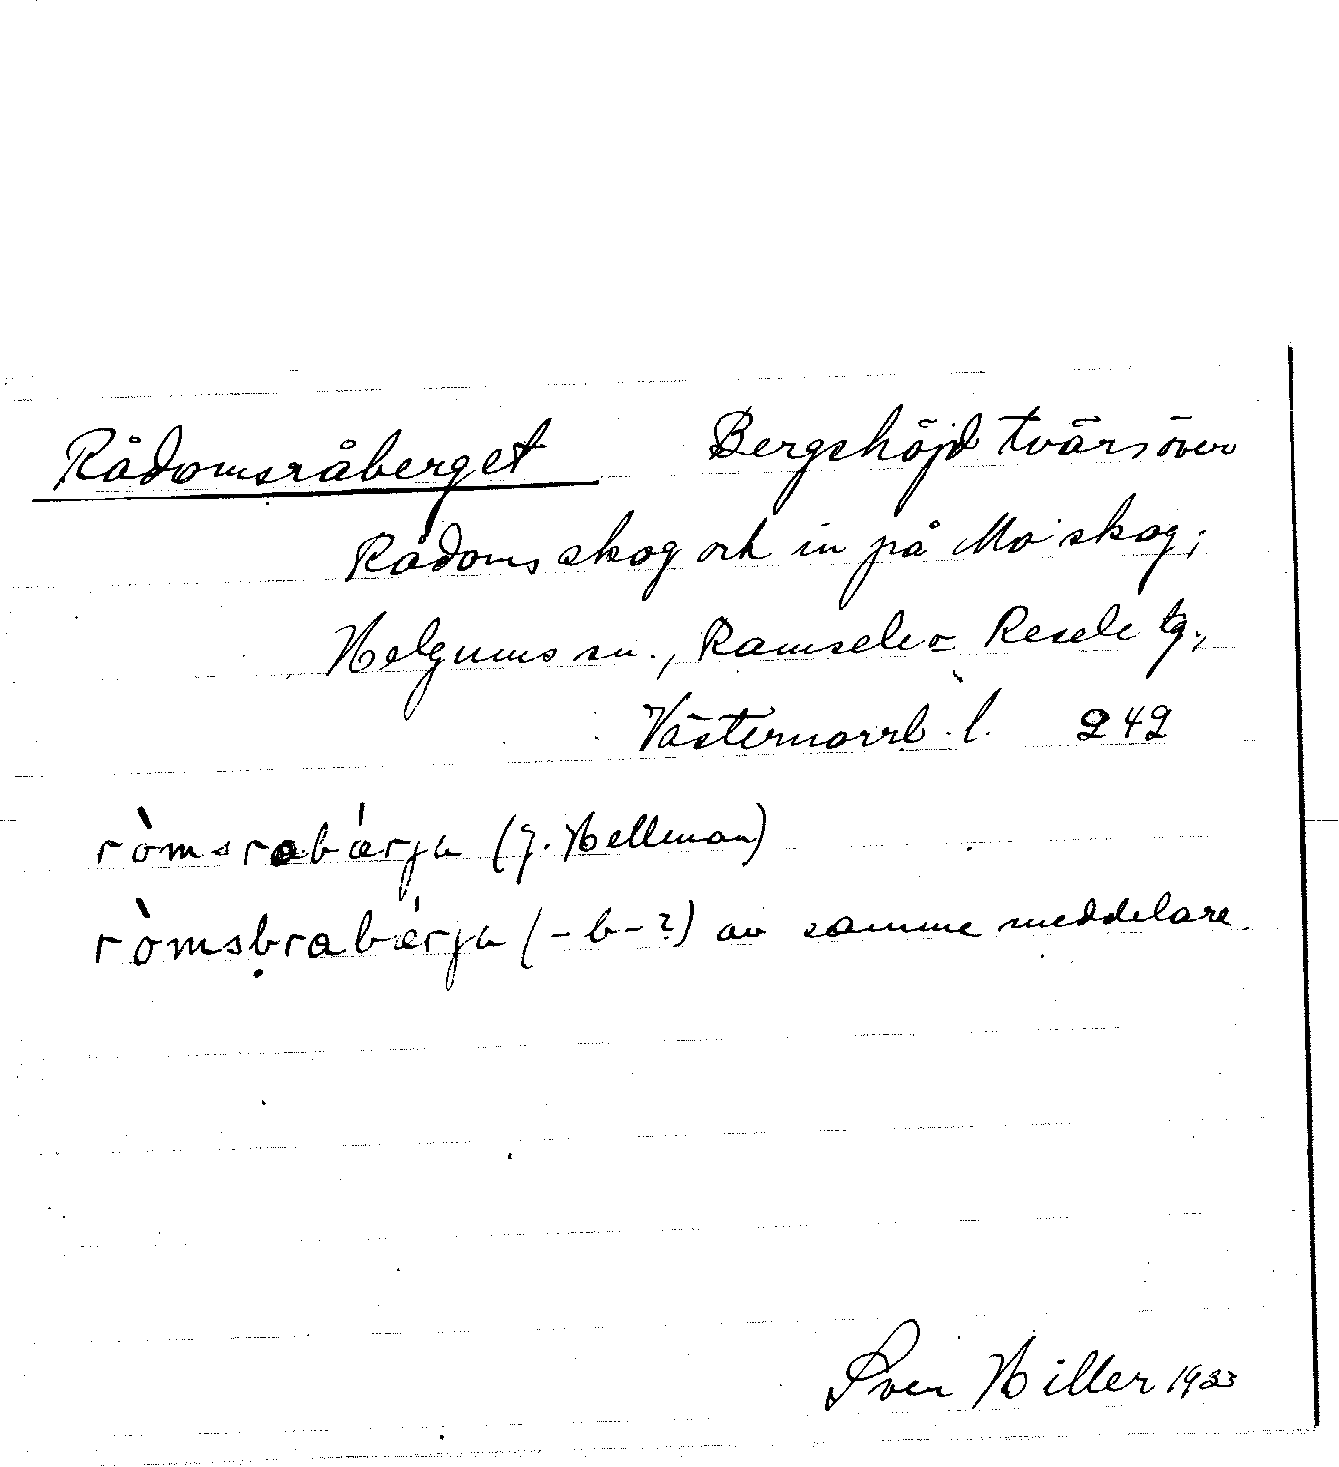 Rådomsråberget Bergshöjd tvärsöver
Rådoms skog och in på Mo skog;
Helgums sn., Ramsele o Resele tg.,
Västernorrl. l. 242
ròmsrabárja (J. Hellman)
ròmsbrabárja (-b-?) av samme meddelare.
Sven Hiller 1933